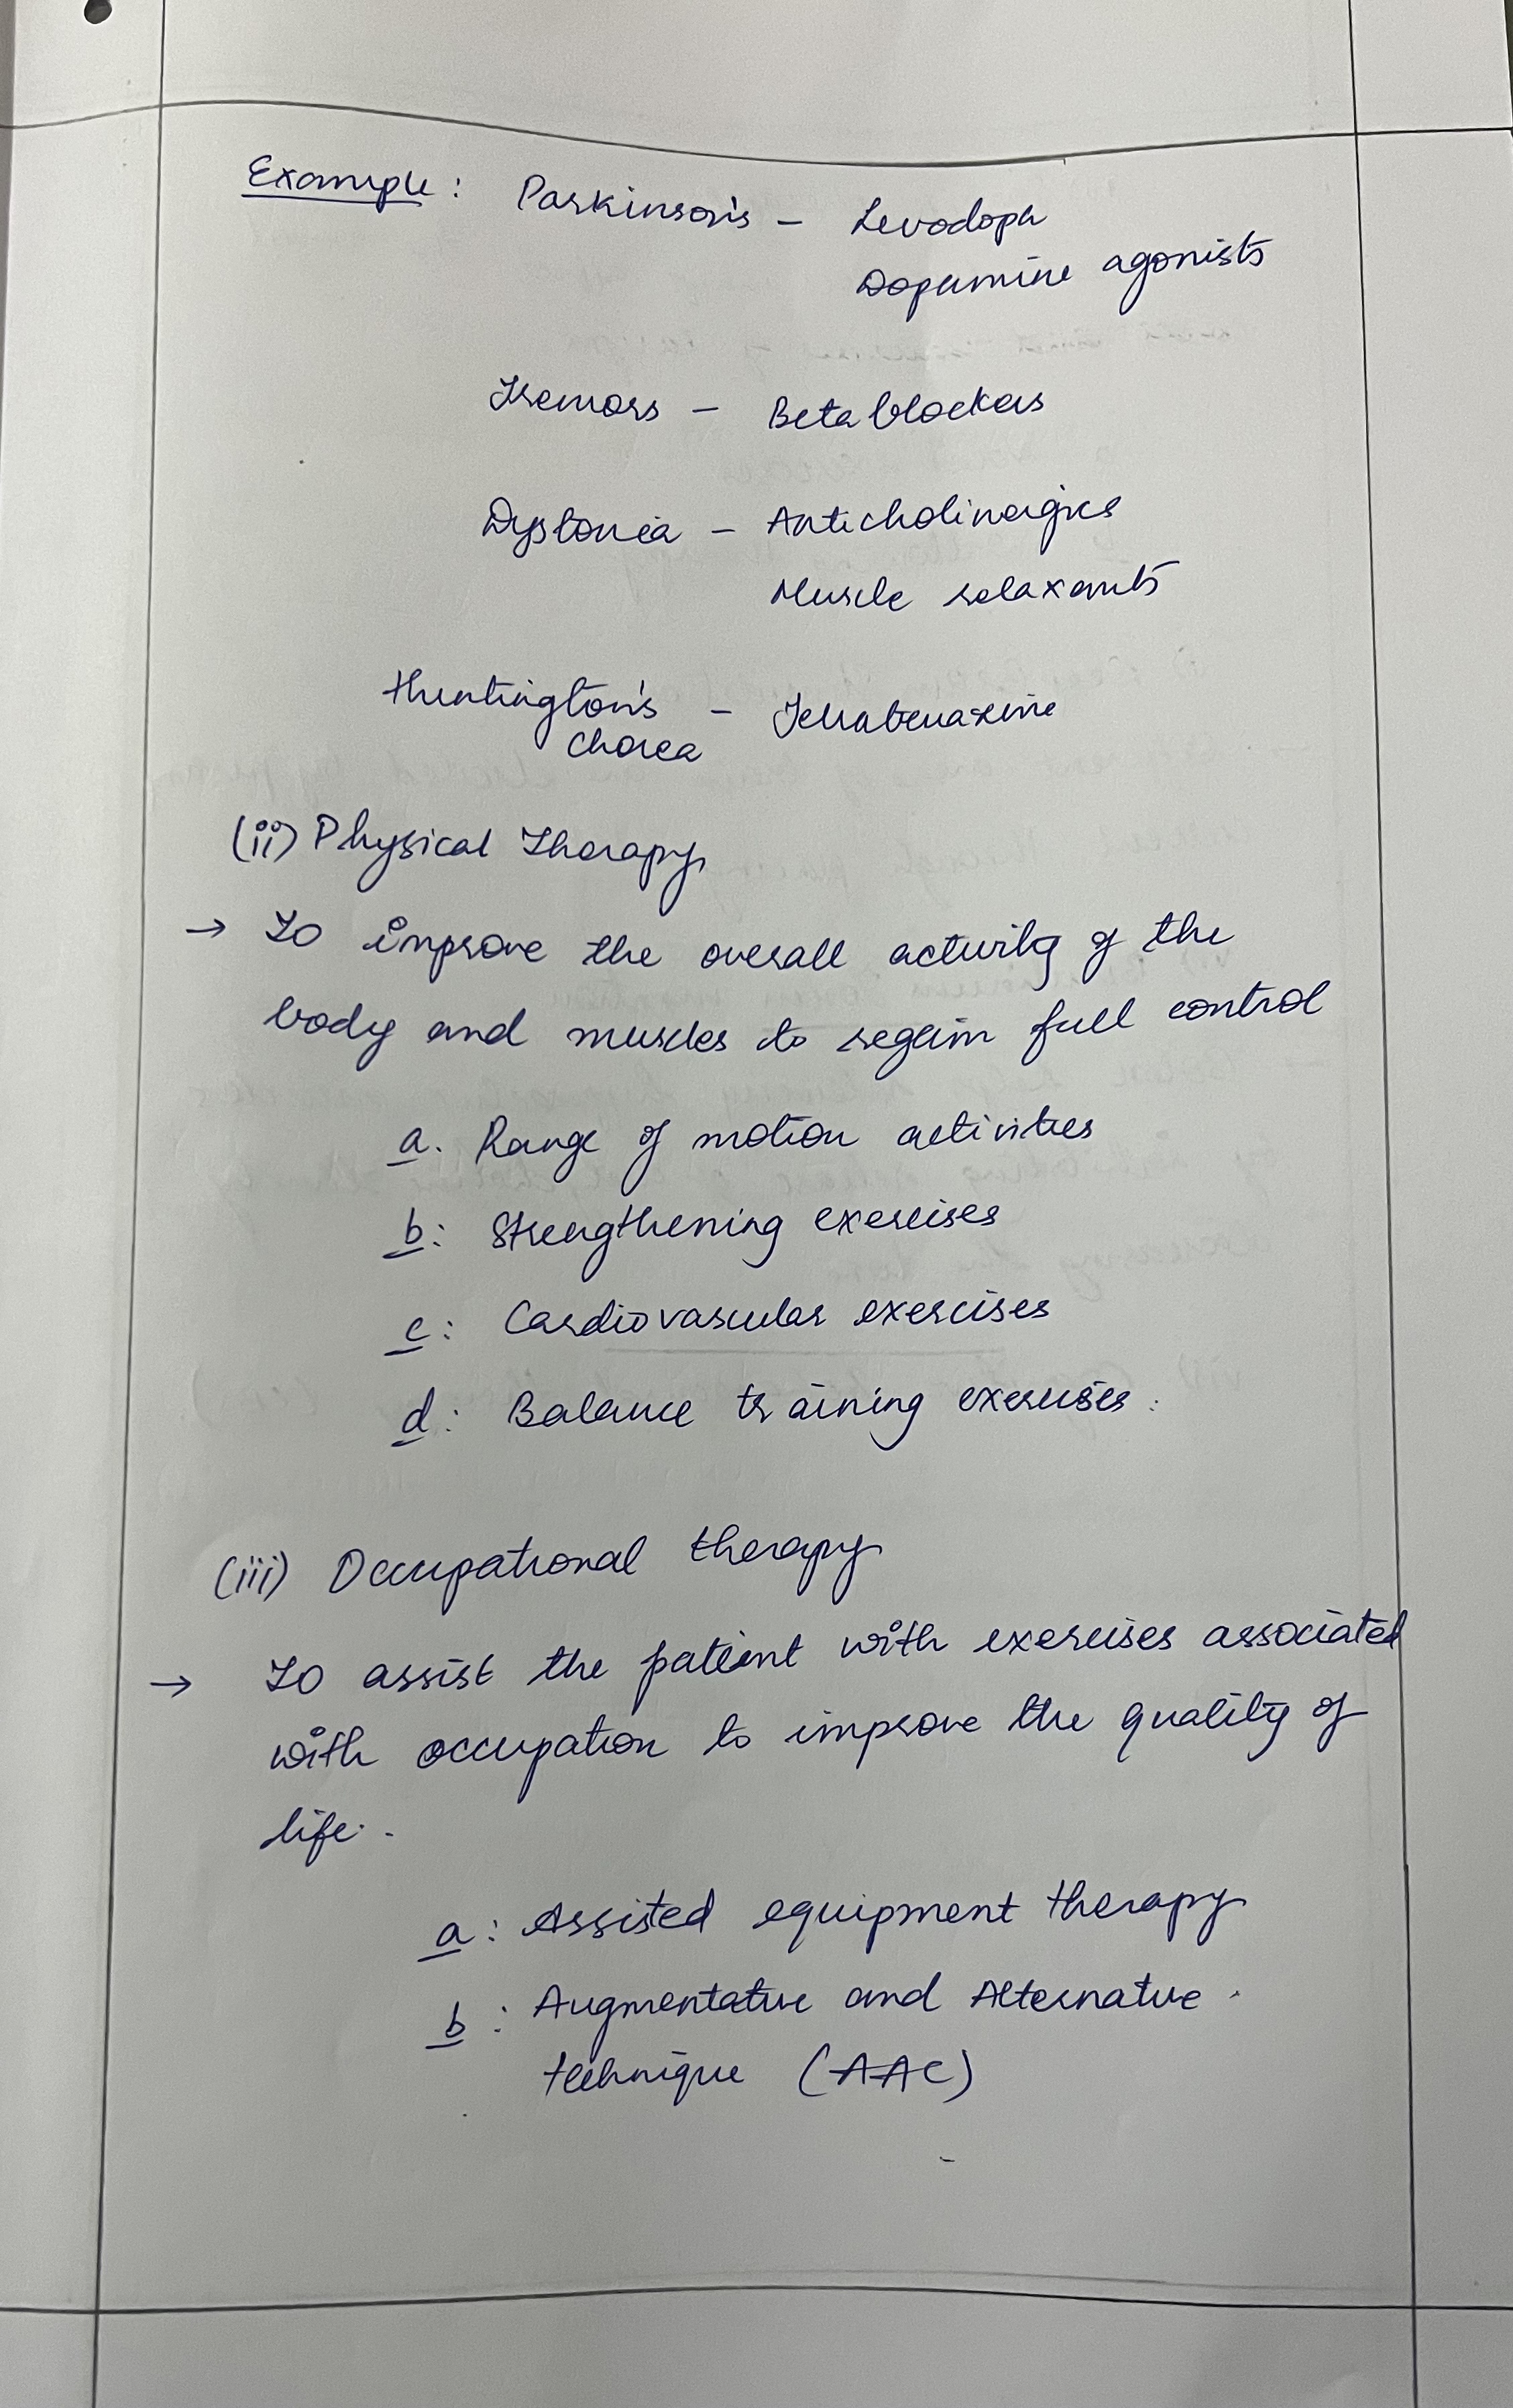 Example : Parkinson's - Levodopa
Dopamine agonists
Tremors - Beta blockers
Dystonia - Anticholinergics
Muscle relaxants
Huntington's - Tetrabenazine
Chorea
(ii) Physical Therapy
→ To improve the overall activity of the
body and muscles to regain full control
a. Range of motion activities
b: Strengthening exercises
c: Cardiovascular exercises
d: Balance training exercises.
(iii) Occupational therapy
→ To assist the patient with exercises associated
with occupation to improve the quality of
life.
a: Assisted equipment therapy
b: Augmentative and Alternative
technique (AAC)